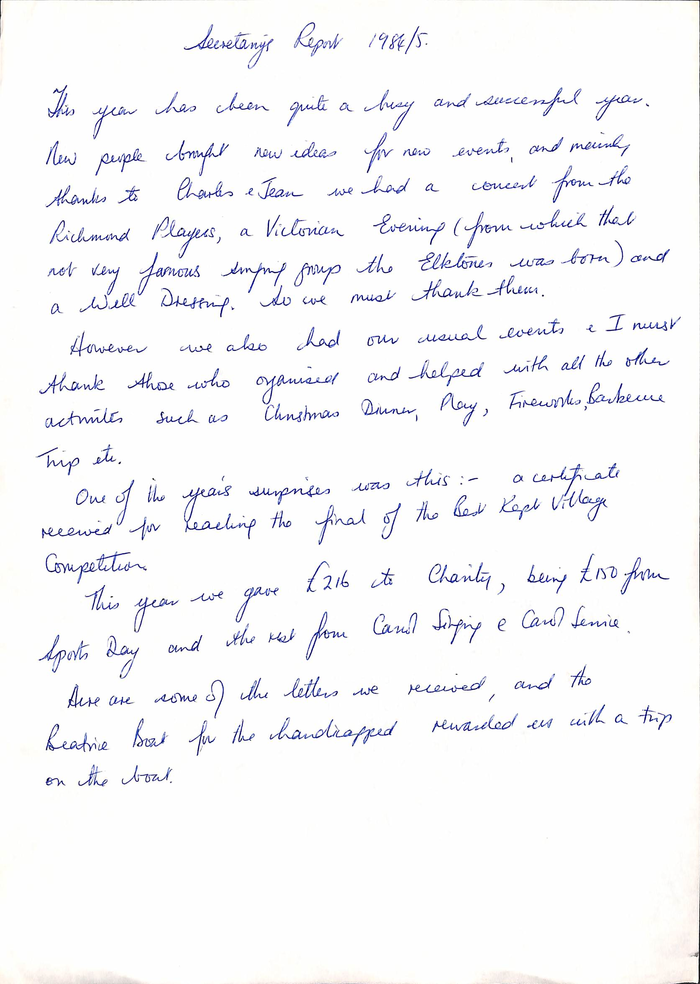 Secretary's Report 1984/5.
This year has been quite a busy and successful year.
New people brought new ideas for new events, and mainly
thanks to Charles & Jean we had a concert from the
Richmond Players, a Victorian Evening (from which that
not very famous singing group the Elktones was born) and
a Well Dressing. So we must thank them.
However we also had our usual events & I must
thank those who organised and helped with all the other
activities such as Christmas Dinner, Play, Fireworks, Barbecue
Trip etc.
One of the year's surprises was this :- a certificate
received for reaching the final of the Best Kept Village
Competition
This year we gave £216 to Charity, being £150 from
Sports Day and the rest from Carol Singing & Carol Service.
Here are some of the letters we received, and the
Beatrice Boat for the handicapped rewarded us with a trip
on the boat.